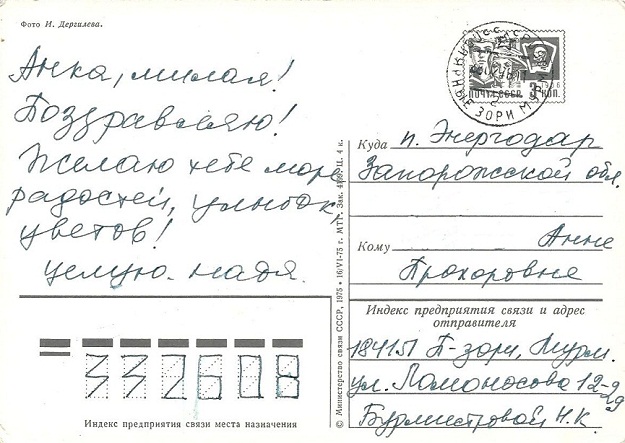 Фото И. Дергилева.
Анка, милая!
Поздравляю!
Желаю тебе море
радостей, улыбок,
цветов!
Целую. Надя.
ПОЧТА СССР
КОП.
ЗОРИ
Куда п. Энергодар
Запорожской обл.
Кому Анне
Прохоровне
Индекс предприятия связи и адрес
отправителя
184151 П-зори, Мурм.
ул. Ломоносова 12-99
Бурмистровой Н.К.
332608
Индекс предприятия связи места назначения
© Министерство связи СССР, 1975 • 16/VI-75 г. МТГ. Зак. Ц. 4 к.